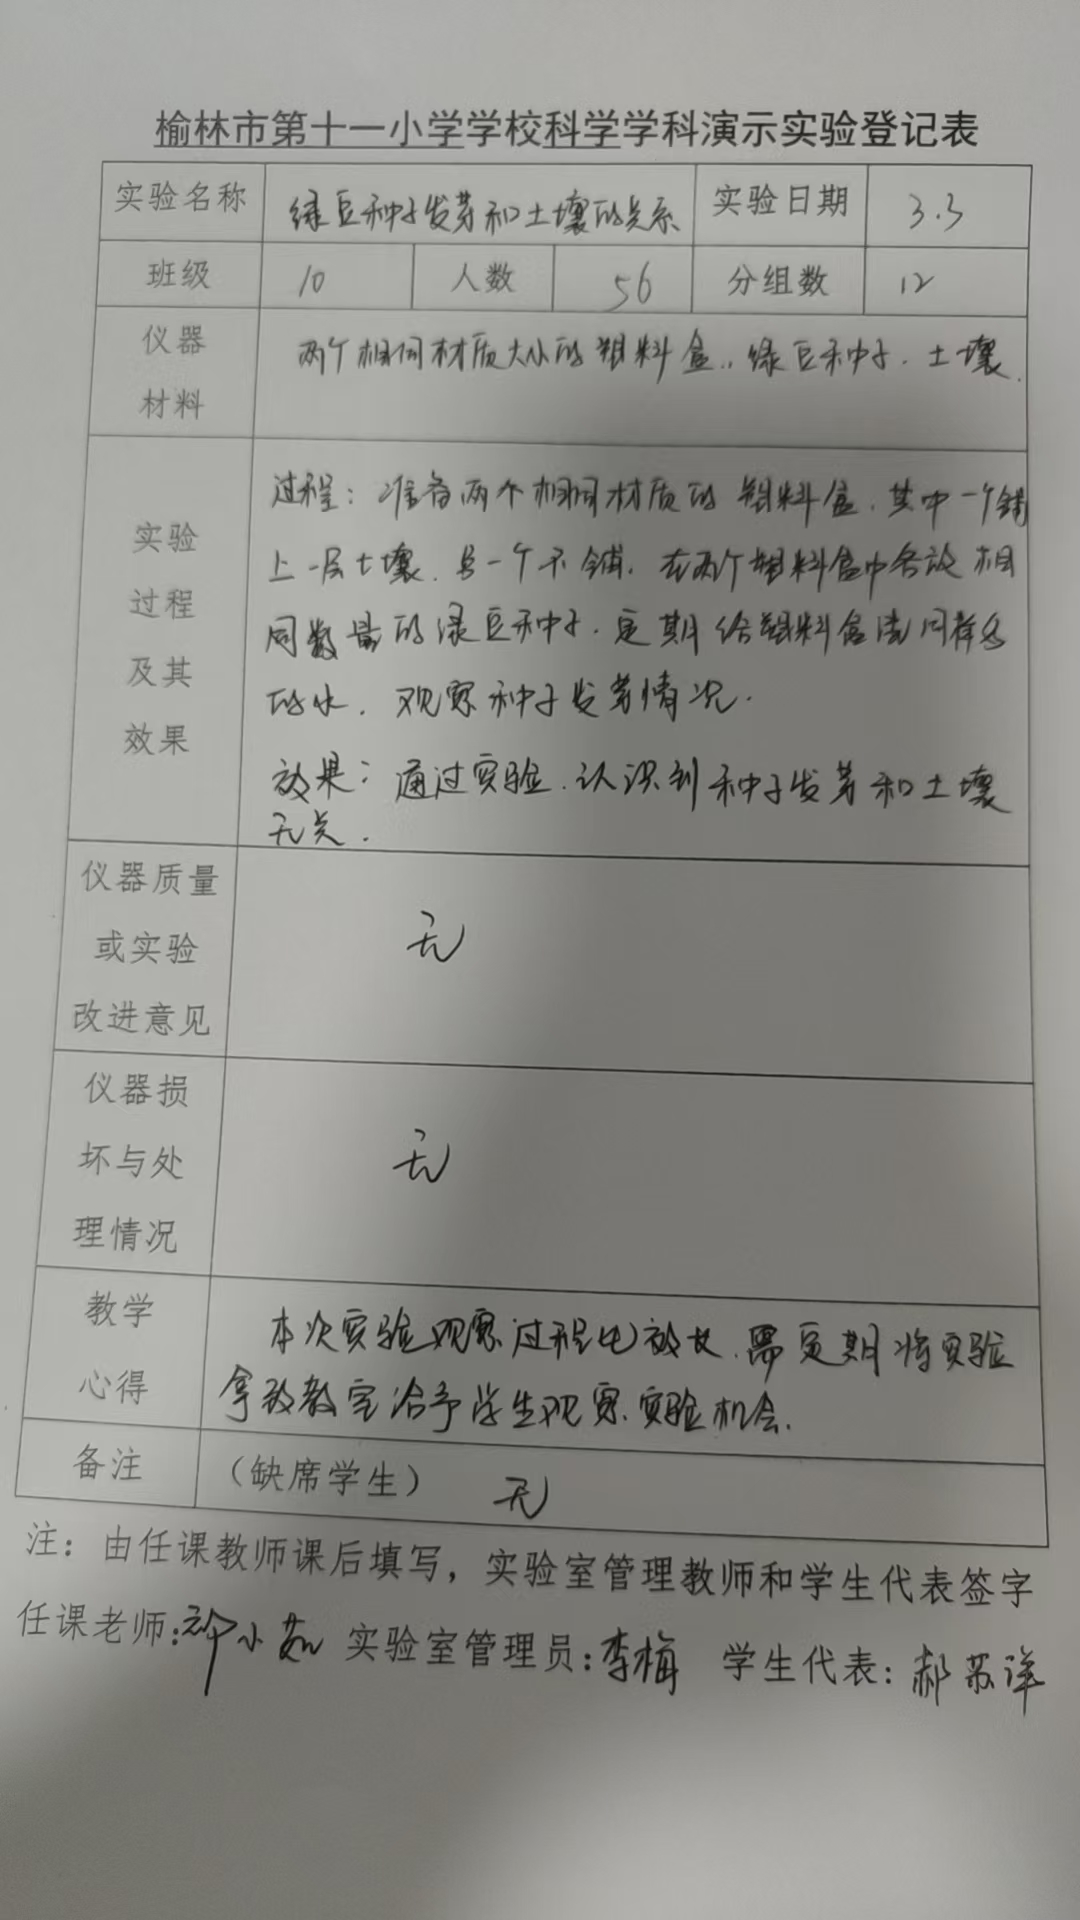 榆林市第十一小学学校科学学科演示实验登记表
实验名称 绿豆种子发芽和土壤的关系 实验日期 3.3
班级 10 人数 56 分组数 12
仪器 两个相同材质大小的塑料盒,绿豆种子.土壤.
材料
过程:准备两个相同材质的塑料盒.其中一个铺
实验 上一层土壤.另一个不铺.在两个塑料盒中各放相
过程 同数量的绿豆种子.定期给塑料盒浇同样多
及其 的水.观察种子发芽情况.
效果 效果:通过实验.认识到种子发芽和土壤
无关.
仪器质量
或实验 无
改进意见
仪器损
坏与处 无
理情况
教学 本次实验观察过程比较长.需定期将实验
心得 拿到教室给予学生观察.实验机会.
备注 (缺席学生) 无
注:由任课教师课后填写,实验室管理教师和学生代表签字
任课老师: 小茹 实验室管理员:李梅 学生代表:郝苏洋